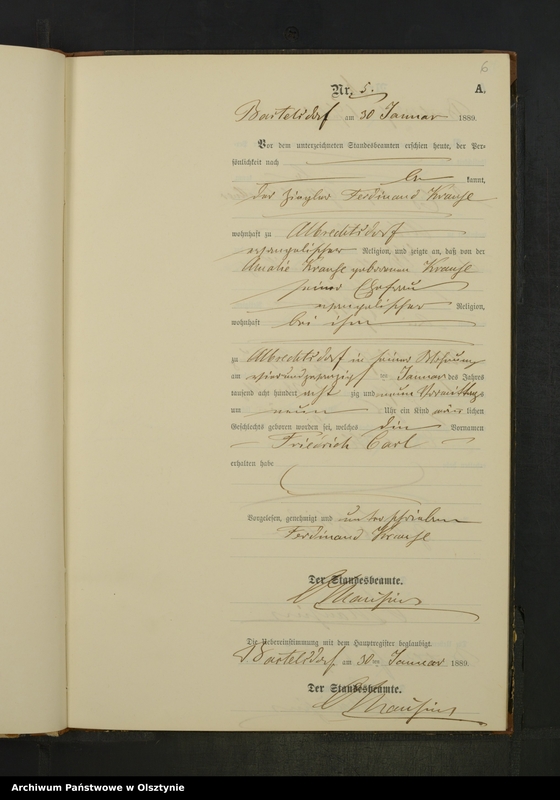 6
Nr. 5. A.
Bartelsdorf am 30 Januar 1889.
Vor dem unterzeichneten Standesbeamten erschien heute, der Per-
sönlichkeit nach
be kannt,
der Ziegler Ferdinand
wohnhaft zu Albrechtsdorf
evangelischer Religion, und zeigte an, daß von der
Amalie geborenen
seiner Ehefrau
evangelischer Religion,
wohnhaft bei ihm
zu Albrechtsdorf in seiner Wohnung
am vierundzwanzigsten Januar des Jahres
tausend acht hundert acht zig und neun Vormittags
um neun Uhr ein Kind männ lichen
Geschlechts geboren worden sei, welches die Vornamen
Friedrich Carl
erhalten habe
Vorgelesen, genehmigt und unterschrieben
Ferdinand
Der Standesbeamte.
Die Uebereinstimmung mit dem Hauptregister beglaubigt.
Bartelsdorf am 30ten Januar 1889.
Der Standesbeamte.
Archiwum Państwowe w Olsztynie